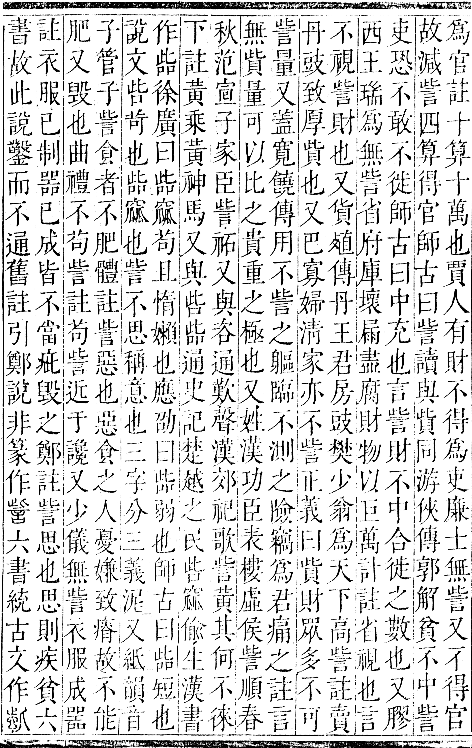 爲官註十算十萬也賈人有財不得爲吏廉士無訾又不得官
故減訾四算得官師古曰訾讀與貲同游俠傳郭解貧不中訾
吏恐不敢不徙師古曰中充也言訾財不中合徙之數也又膠
西王瑞爲無訾省府庫壞漏盡腐財物以巨萬計註省視也言
不視訾財也又貨殖傳丹王君房豉樊少翁爲天下高訾註賣
丹豉致厚貲也又巴寡婦清家亦不訾正義曰貲財眾多不可
訾量又蓋寬饒傳用不訾之軀臨不測之險竊爲君痛之註言
無貲量可以比之貴重之極也又姓漢功臣表樓虛侯訾順春
秋范宣子家臣訾祏又與咨通歎聲漢郊祀歌訾黃其何不徠
下註黃乘黃神馬又與呰啙通史記楚越之民呰窳偷生漢書
作啙徐廣曰呰窳苟且惰嬾也應劭曰啙弱也師古曰啙短也
說文呰苛也啙窳也訾不思稱意也三字分三義泥又紙韻音
子管子訾食者不肥體註訾惡也惡食之人憂嫌致瘠故不能
肥又毀也曲禮不苟訾註苟訾近于讒又少儀無訾衣服成器
註衣服已制器已成皆不當疵毀之鄭註訾思也思則疾貧六
書故此說鑿而不通舊註引鄭說非篆作訾六書統古文作𧧏